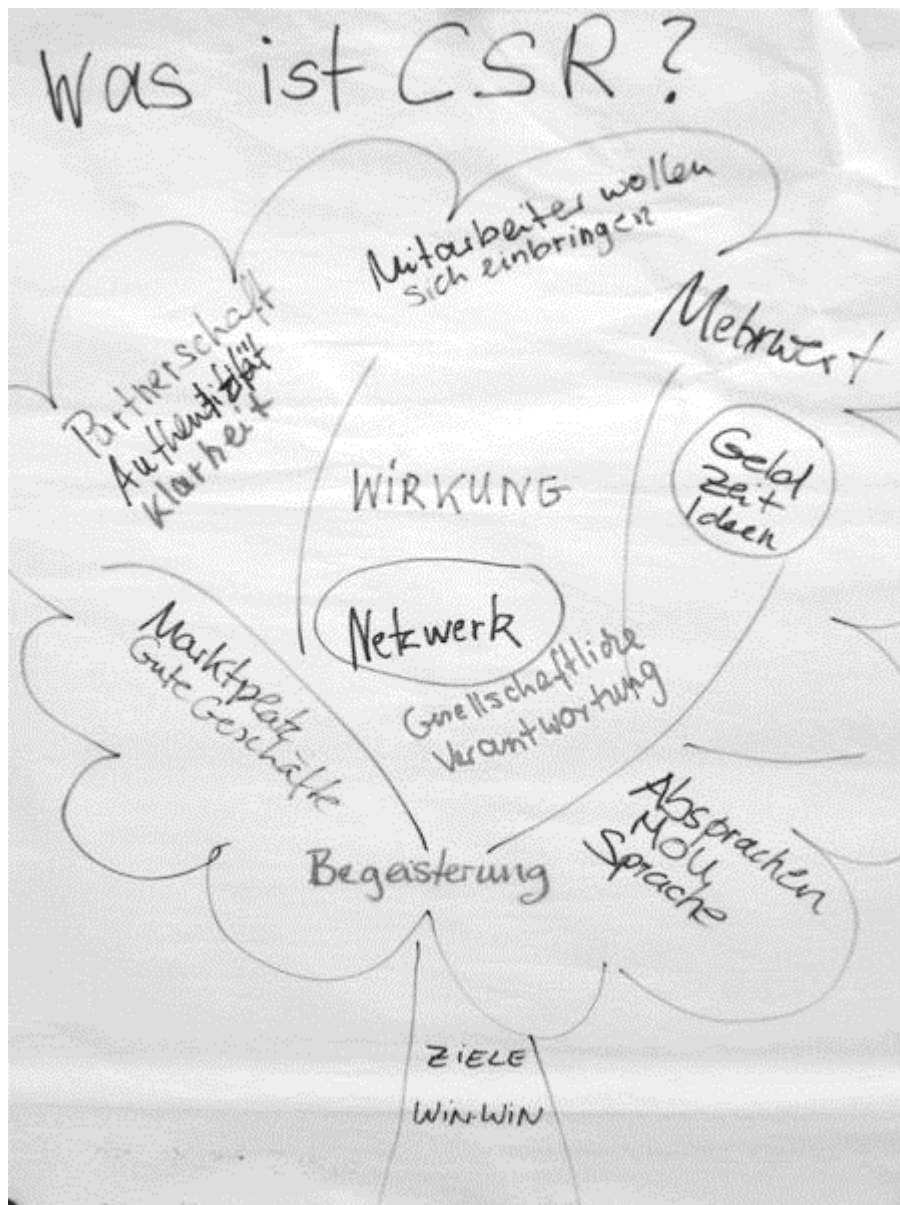 Was ist CSR?
Mitarbeiter wollen
sich einbringen
Mehrwert
Partnerschaft
Authentizität
Klarheit
Geld
Zeit
Ideen
WIRKUNG
Netzwerk
Gesellschaftliche
Verantwortung
Marktplatz
Gute Geschäfte
Absprachen
MoU
Sprache
Begeisterung
ZIELE
WIN-WIN